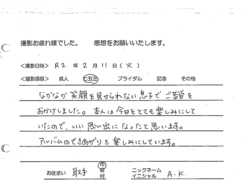 撮影お疲れ様でした。 感想をお願いいたします。
<撮影日時> R2年2月11日(火)
<撮影項目> 成人 七五三 ブライダル 記念 その他
なかなか笑顔を見せられない息子で ご苦労を
おかけしました。本人は今日をとても楽しみにして
いたので、いい思い出になったと思います。
アルバムのできあがりを楽しみにしています。
お住まい 取手 市 ニックネーム イニシャル A.K.